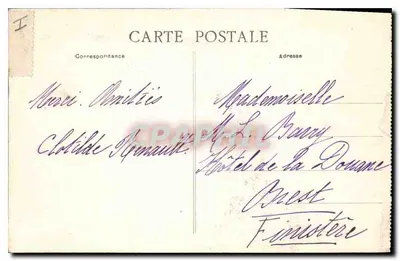 I
CARTE POSTALE
Correspondance
Adresse
Merci. Amitiés
Clotilde Renault
Mademoiselle
M. L. Bargy
Hôtel de la Douane
Brest
Finistère